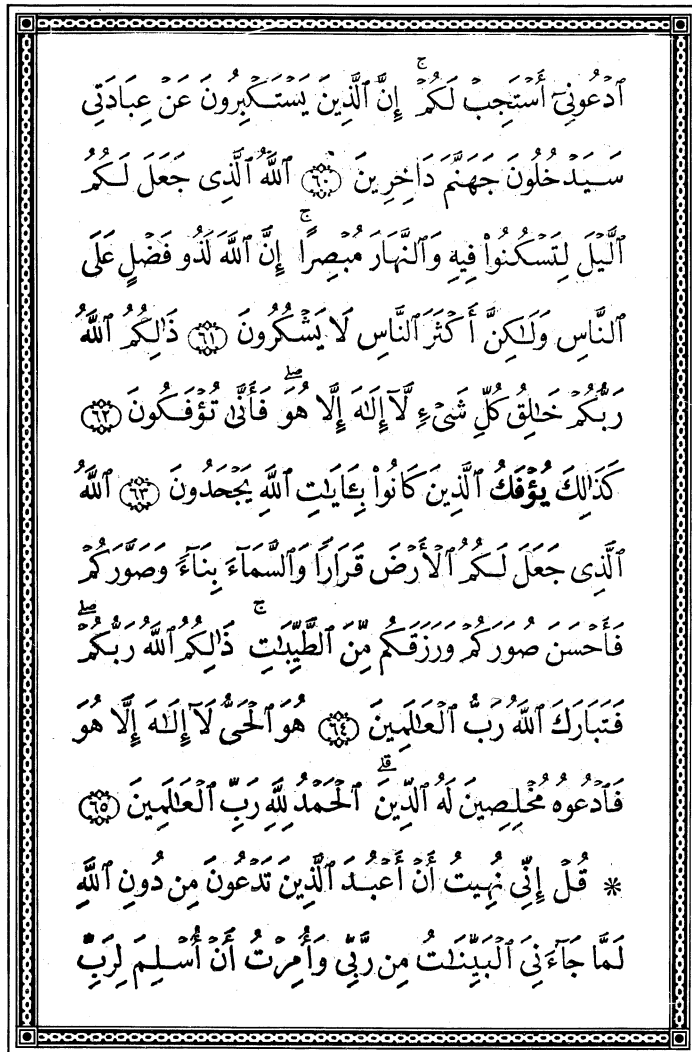 ٱدۡعُونِيٓ أَسۡتَجِبۡ لَكُمۡۚ إِنَّ ٱلَّذِينَ يَسۡتَكۡبِرُونَ عَنۡ عِبَادَتِي
سَيَدۡخُلُونَ جَهَنَّمَ دَاخِرِينَ ٦٠ ٱللَّهُ ٱلَّذِي جَعَلَ لَكُمُ
ٱلَّيۡلَ لِتَسۡكُنُواْ فِيهِ وَٱلنَّهَارَ مُبۡصِرًاۚ إِنَّ ٱللَّهَ لَذُو فَضۡلٍ عَلَى
ٱلنَّاسِ وَلَٰكِنَّ أَكۡثَرَ ٱلنَّاسِ لَا يَشۡكُرُونَ ٦١ ذَٰلِكُمُ ٱللَّهُ
رَبُّكُمۡ خَٰلِقُ كُلِّ شَيۡءٖ لَّآ إِلَٰهَ إِلَّا هُوَۖ فَأَنَّىٰ تُؤۡفَكُونَ ٦٢
كَذَٰلِكَ يُؤۡفَكُ ٱلَّذِينَ كَانُواْ بِـَٔايَٰتِ ٱللَّهِ يَجۡحَدُونَ ٦٣ ٱللَّهُ
ٱلَّذِي جَعَلَ لَكُمُ ٱلۡأَرۡضَ قَرَارٗا وَٱلسَّمَآءَ بِنَآءٗ وَصَوَّرَكُمۡ
فَأَحۡسَنَ صُوَرَكُمۡ وَرَزَقَكُم مِّنَ ٱلطَّيِّبَٰتِۚ ذَٰلِكُمُ ٱللَّهُ رَبُّكُمۡۖ
فَتَبَارَكَ ٱللَّهُ رَبُّ ٱلۡعَٰلَمِينَ ٦٤ هُوَ ٱلۡحَيُّ لَآ إِلَٰهَ إِلَّا هُوَ
فَٱدۡعُوهُ مُخۡلِصِينَ لَهُ ٱلدِّينَۗ ٱلۡحَمۡدُ لِلَّهِ رَبِّ ٱلۡعَٰلَمِينَ ٦٥
* قُلۡ إِنِّي نُهِيتُ أَنۡ أَعۡبُدَ ٱلَّذِينَ تَدۡعُونَ مِن دُونِ ٱللَّهِ
لَمَّا جَآءَنِيَ ٱلۡبَيِّنَٰتُ مِن رَّبِّي وَأُمِرۡتُ أَنۡ أُسۡلِمَ لِرَبِّ